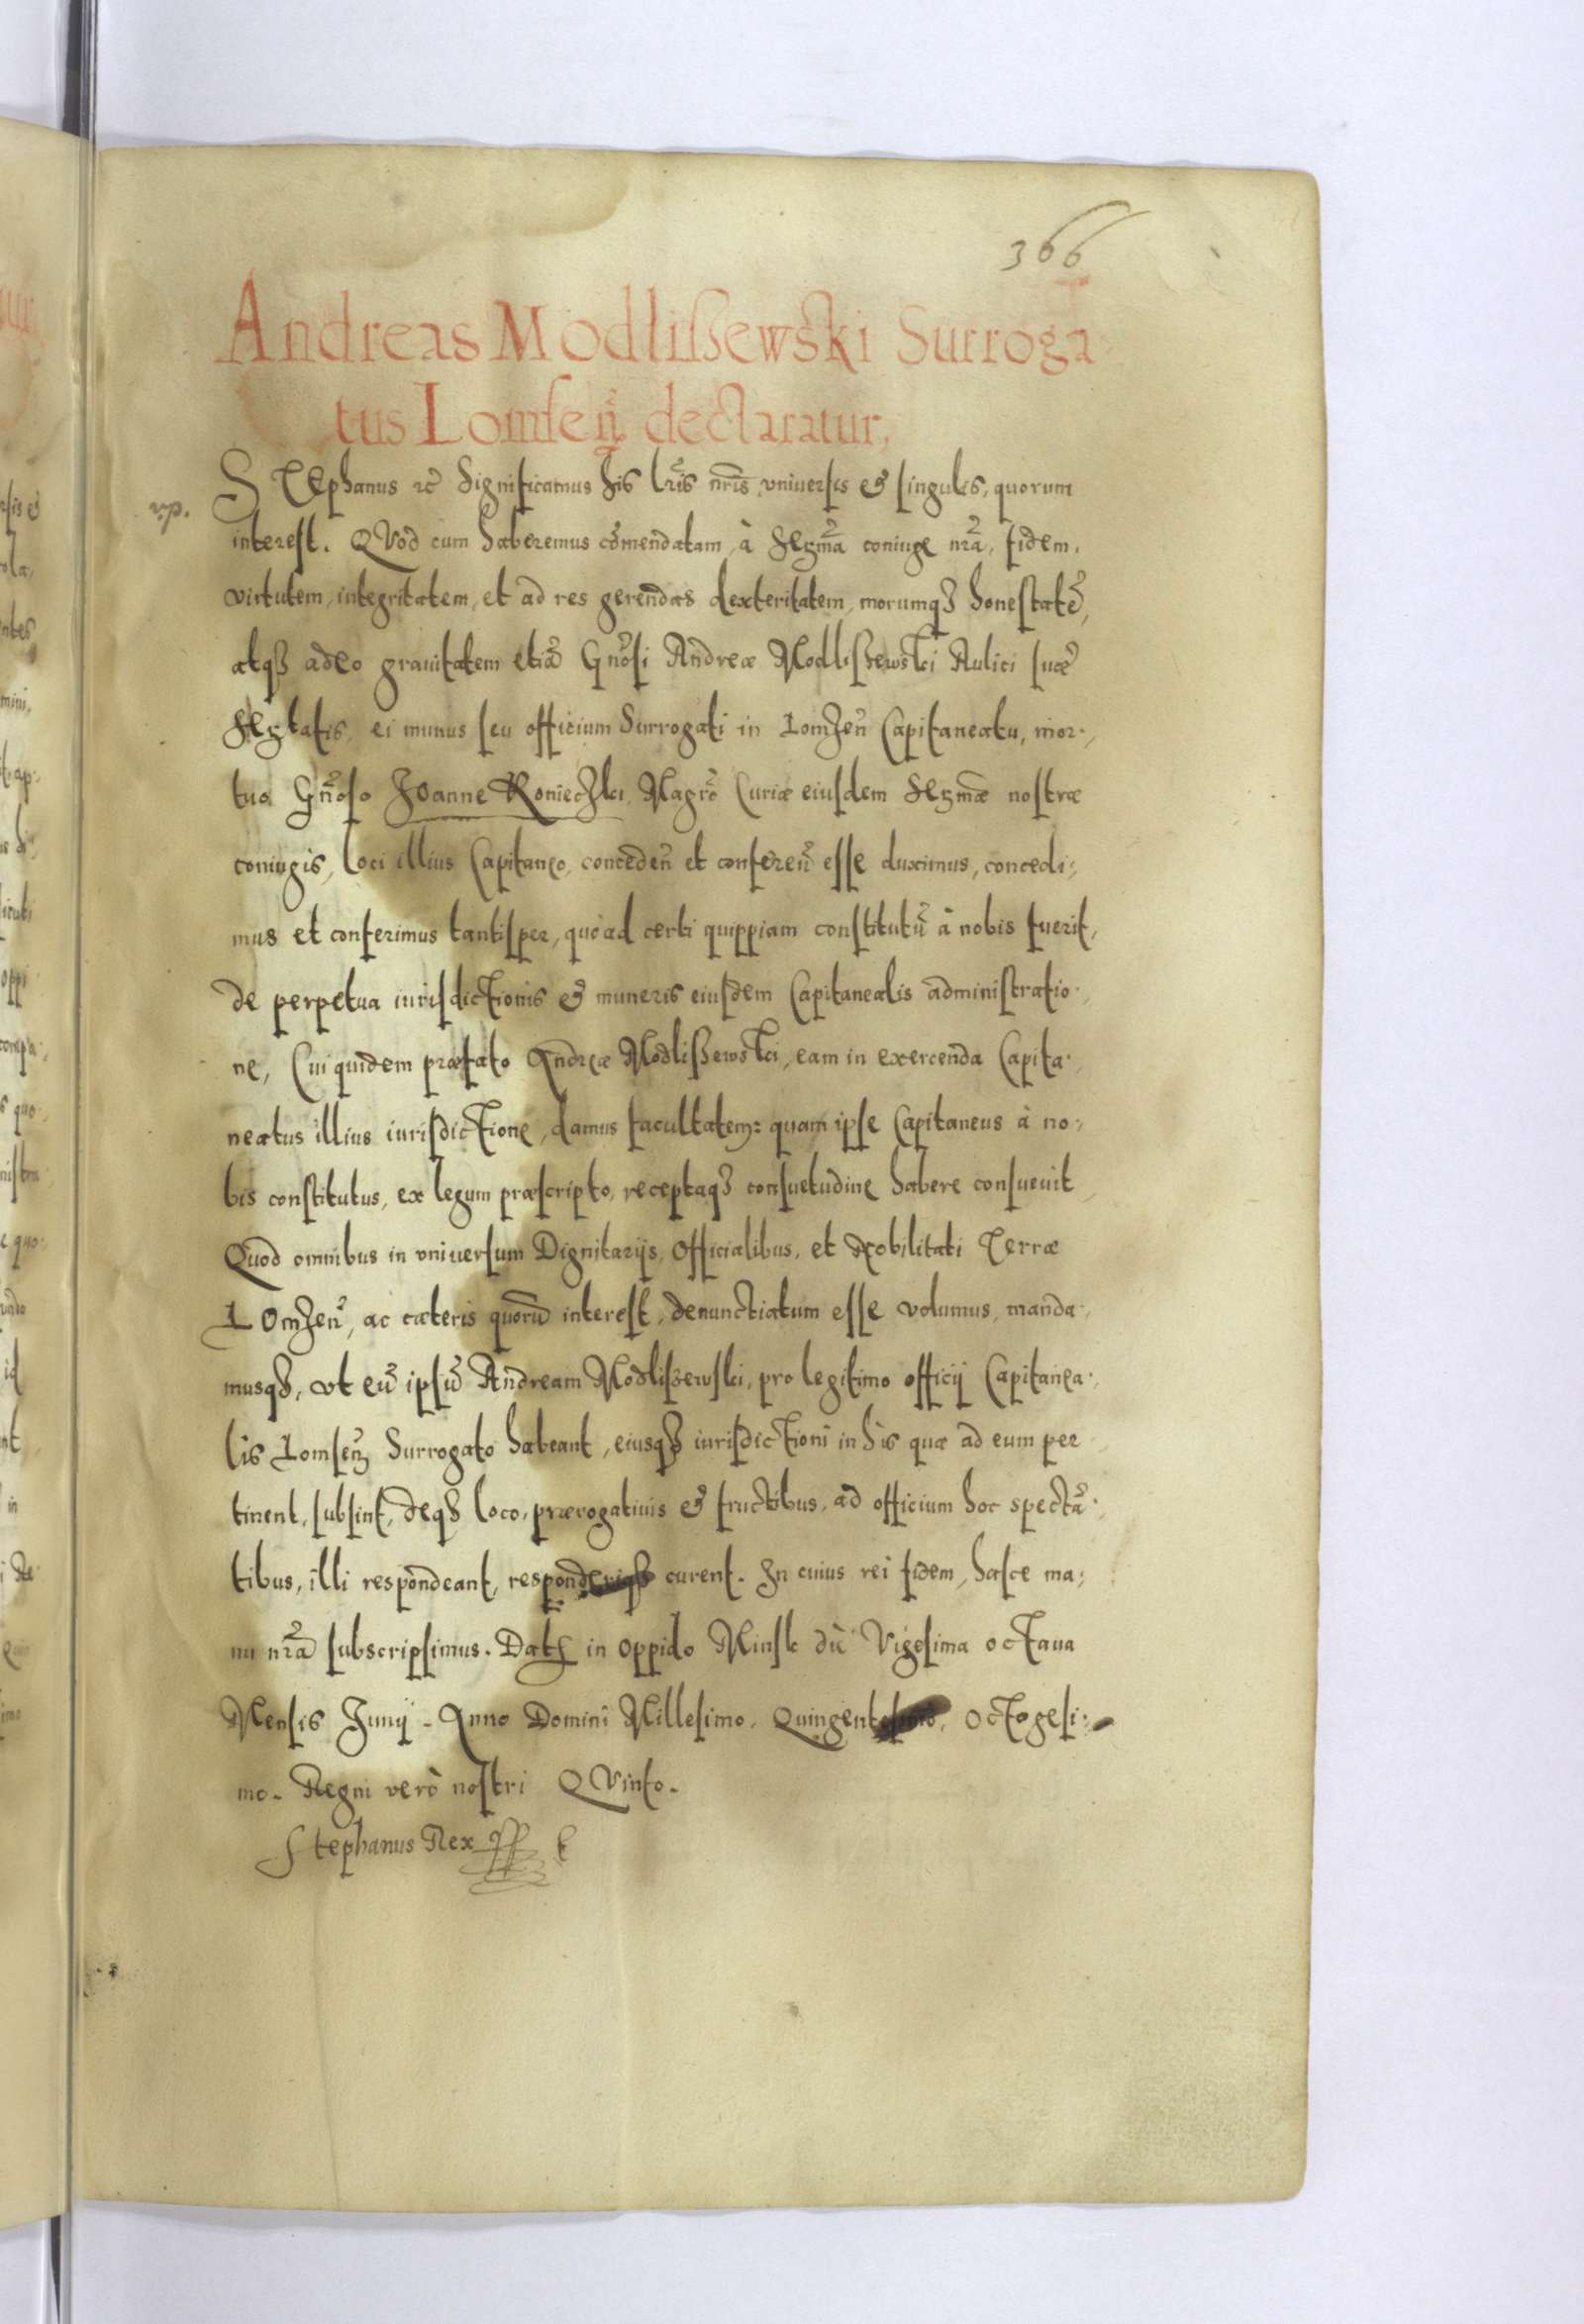 366
Andreas Modlißewski Surroga
tus Lomsen̄ declaratur,
v.p.
STEphanus rc̄ Significamus his lrīs nrīs vniuersis & singulis, quorum
interest. QVod cum haberemus cōmendatam, à Segmā coniuge nrā, fidem,
virtutem, integritatem, et ad res gerendas dexteritatem, morumq3 honestatē,
atq3 adeo grauitatem etiā Gnōsi Andreæ Modlißewski Aulici suæ
Segtatis, ei munus seu officium Surrogati in Lomzen̄ Capitaneatu, mor-,
tuo Gnōso Joanne Konieczki, Magrō Curiæ eiusdem Segmæ nostræ
coniugis, loci illius Capitaneo, conceden̄ et conferen̄ esse duximus, concedi-,
mus et conferimus tantisper, quoad certi quippiam constitutū à nobis fuerit,
de perpetua iurisdictionis & muneris eiusdem Capitanealis administratio-,
ne, Cui quidem præfato Andreæ Modlißewski, eam in exercenda Capita-,
neatus illius iurisdictione, damus facultatem: quam ipse Capitaneus à no-,
bis constitutus, ex legum præscripto, receptaq3 consuetudine habere consueuit,
Quod omnibus in vniuersum Dignitarijs, Officialibus, et Nobilitati Terræ
LOmzen̄, ac cæteris quorū interest, denunctiatum esse volumus, manda-,
musq3, vt eū ipsū Andream Modliszewski, pro legitimo officij Capitanea-,
lis Lomsen̄ Surrogato habeant, eiusq3 iurisdictioni in his quæ ad eum per-,
tinent, subsint, deq3 loco, prærogatiuis & fructibus, ad officium hoc spectā-,
tibus, illi respondeant, responderiq3 curent. In cuius rei fidem, hasce ma-,
nu nrā subscripsimus. Dat in oppido Minsk diē Vigesima octaua
Mensis Junij. Anno Domini Millesimo, Quingentesimo, Octogesi-,
mo. Regni verò nostri QVinto.
Stephanus Rex